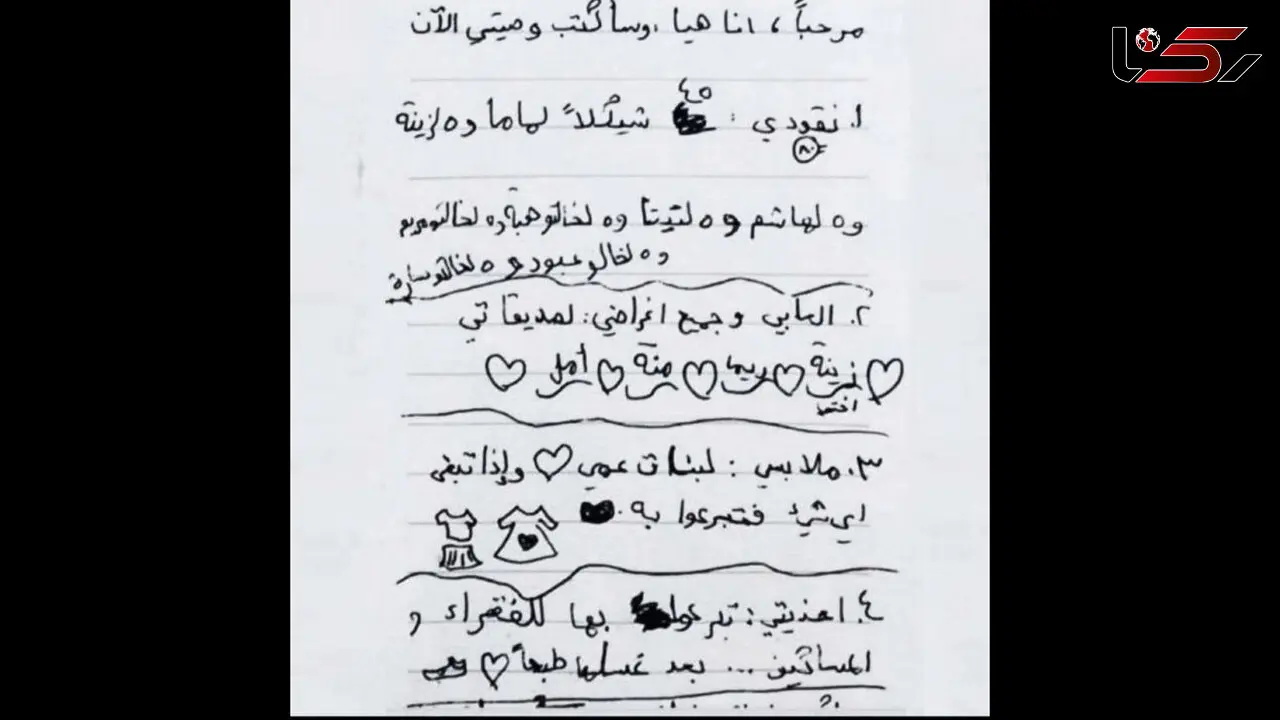 مرحباً، انا هيا، وسأكتب وصيتي الآن
١. نقودي: ٤٥ شيكلاً لماما و٥ لزينة
٨٠
و٥ لهاشم و٥ لتيتا و٥ لخالتو هبة و٥ لخالتو مريم
و٥ لخالو عبود و ٥ لخالتو سارة
٢. العابي وجميع اغراضي: لصديقاتي
زينة ريما منة أمل
اختي
٣. ملابسي: لبنات عمي وإذا تبقى
اي شيئ فتبرعوا به.
٤. احذيتي: تبرعوا بها للفقراء و
المساكين... بعد غسلها طبعاً
رکنا